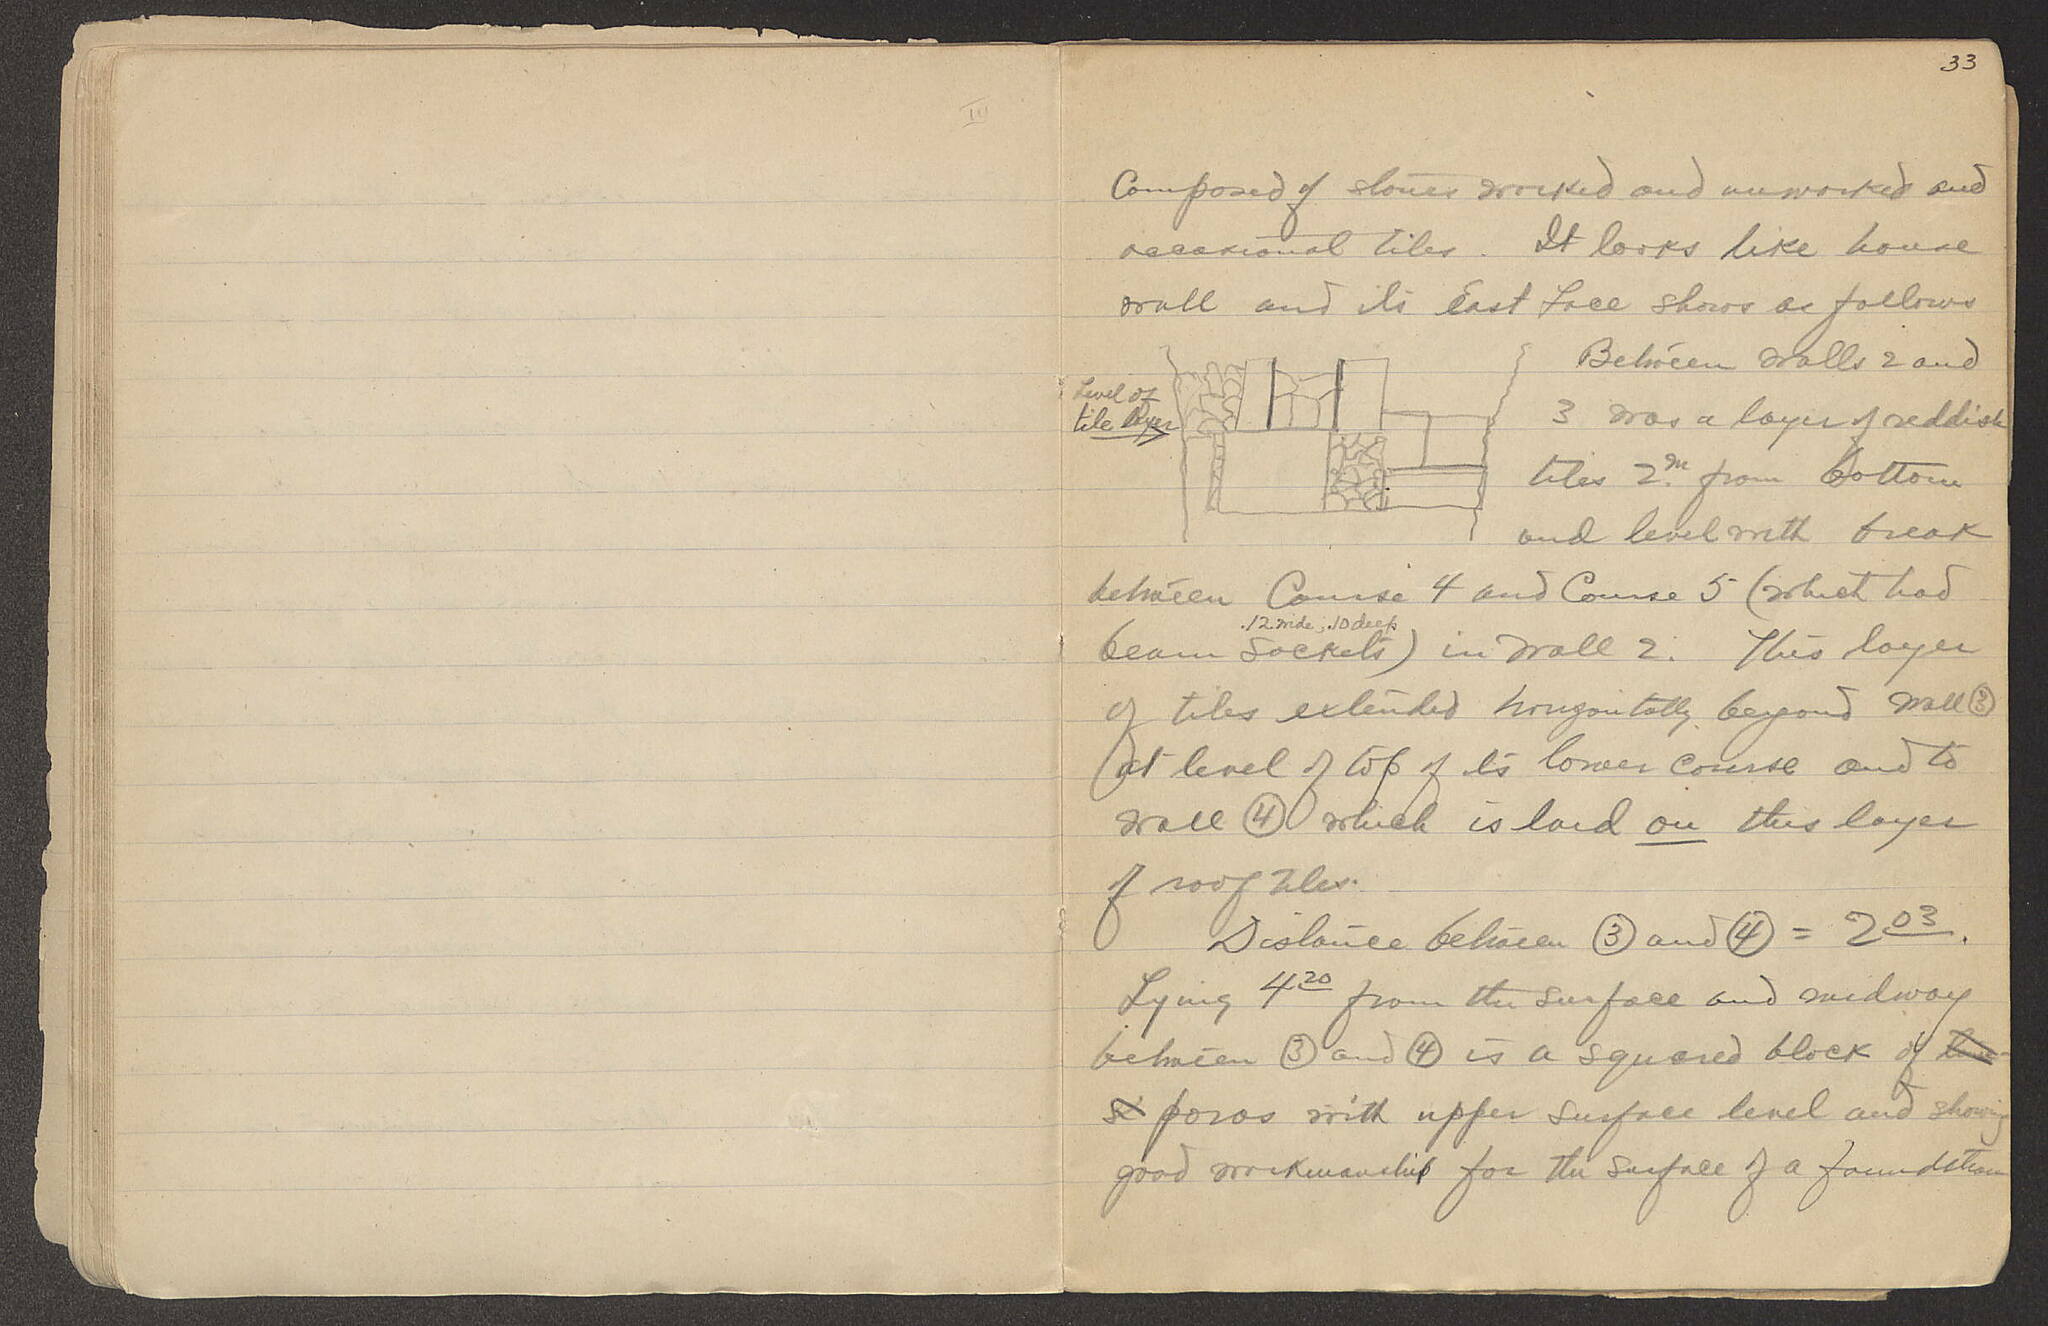 III
33
Composed of stones worked and unworked and
occasional tiles. It looks like house
wall and its East face shows as follows
Level of
tile layer
Between walls 2 and
3 was a layer of reddish
tiles 2.m from bottom
and level with break
between Course 4 and Course 5 (which had
.12 wide; .10 deep
beam sockets) in wall 2. This layer
of tiles extended horizontally beyond wall ③
at level of top of its lower course and to
wall ④ which is laid on this layer
of roof tiles.
Distance between ③ and ④ = 2 03.
Lying 4 20 from the surface and midway
between ③ and ④ is a squared block of
poros with upper surface level and showing
good workmanship for the surface of a foundation